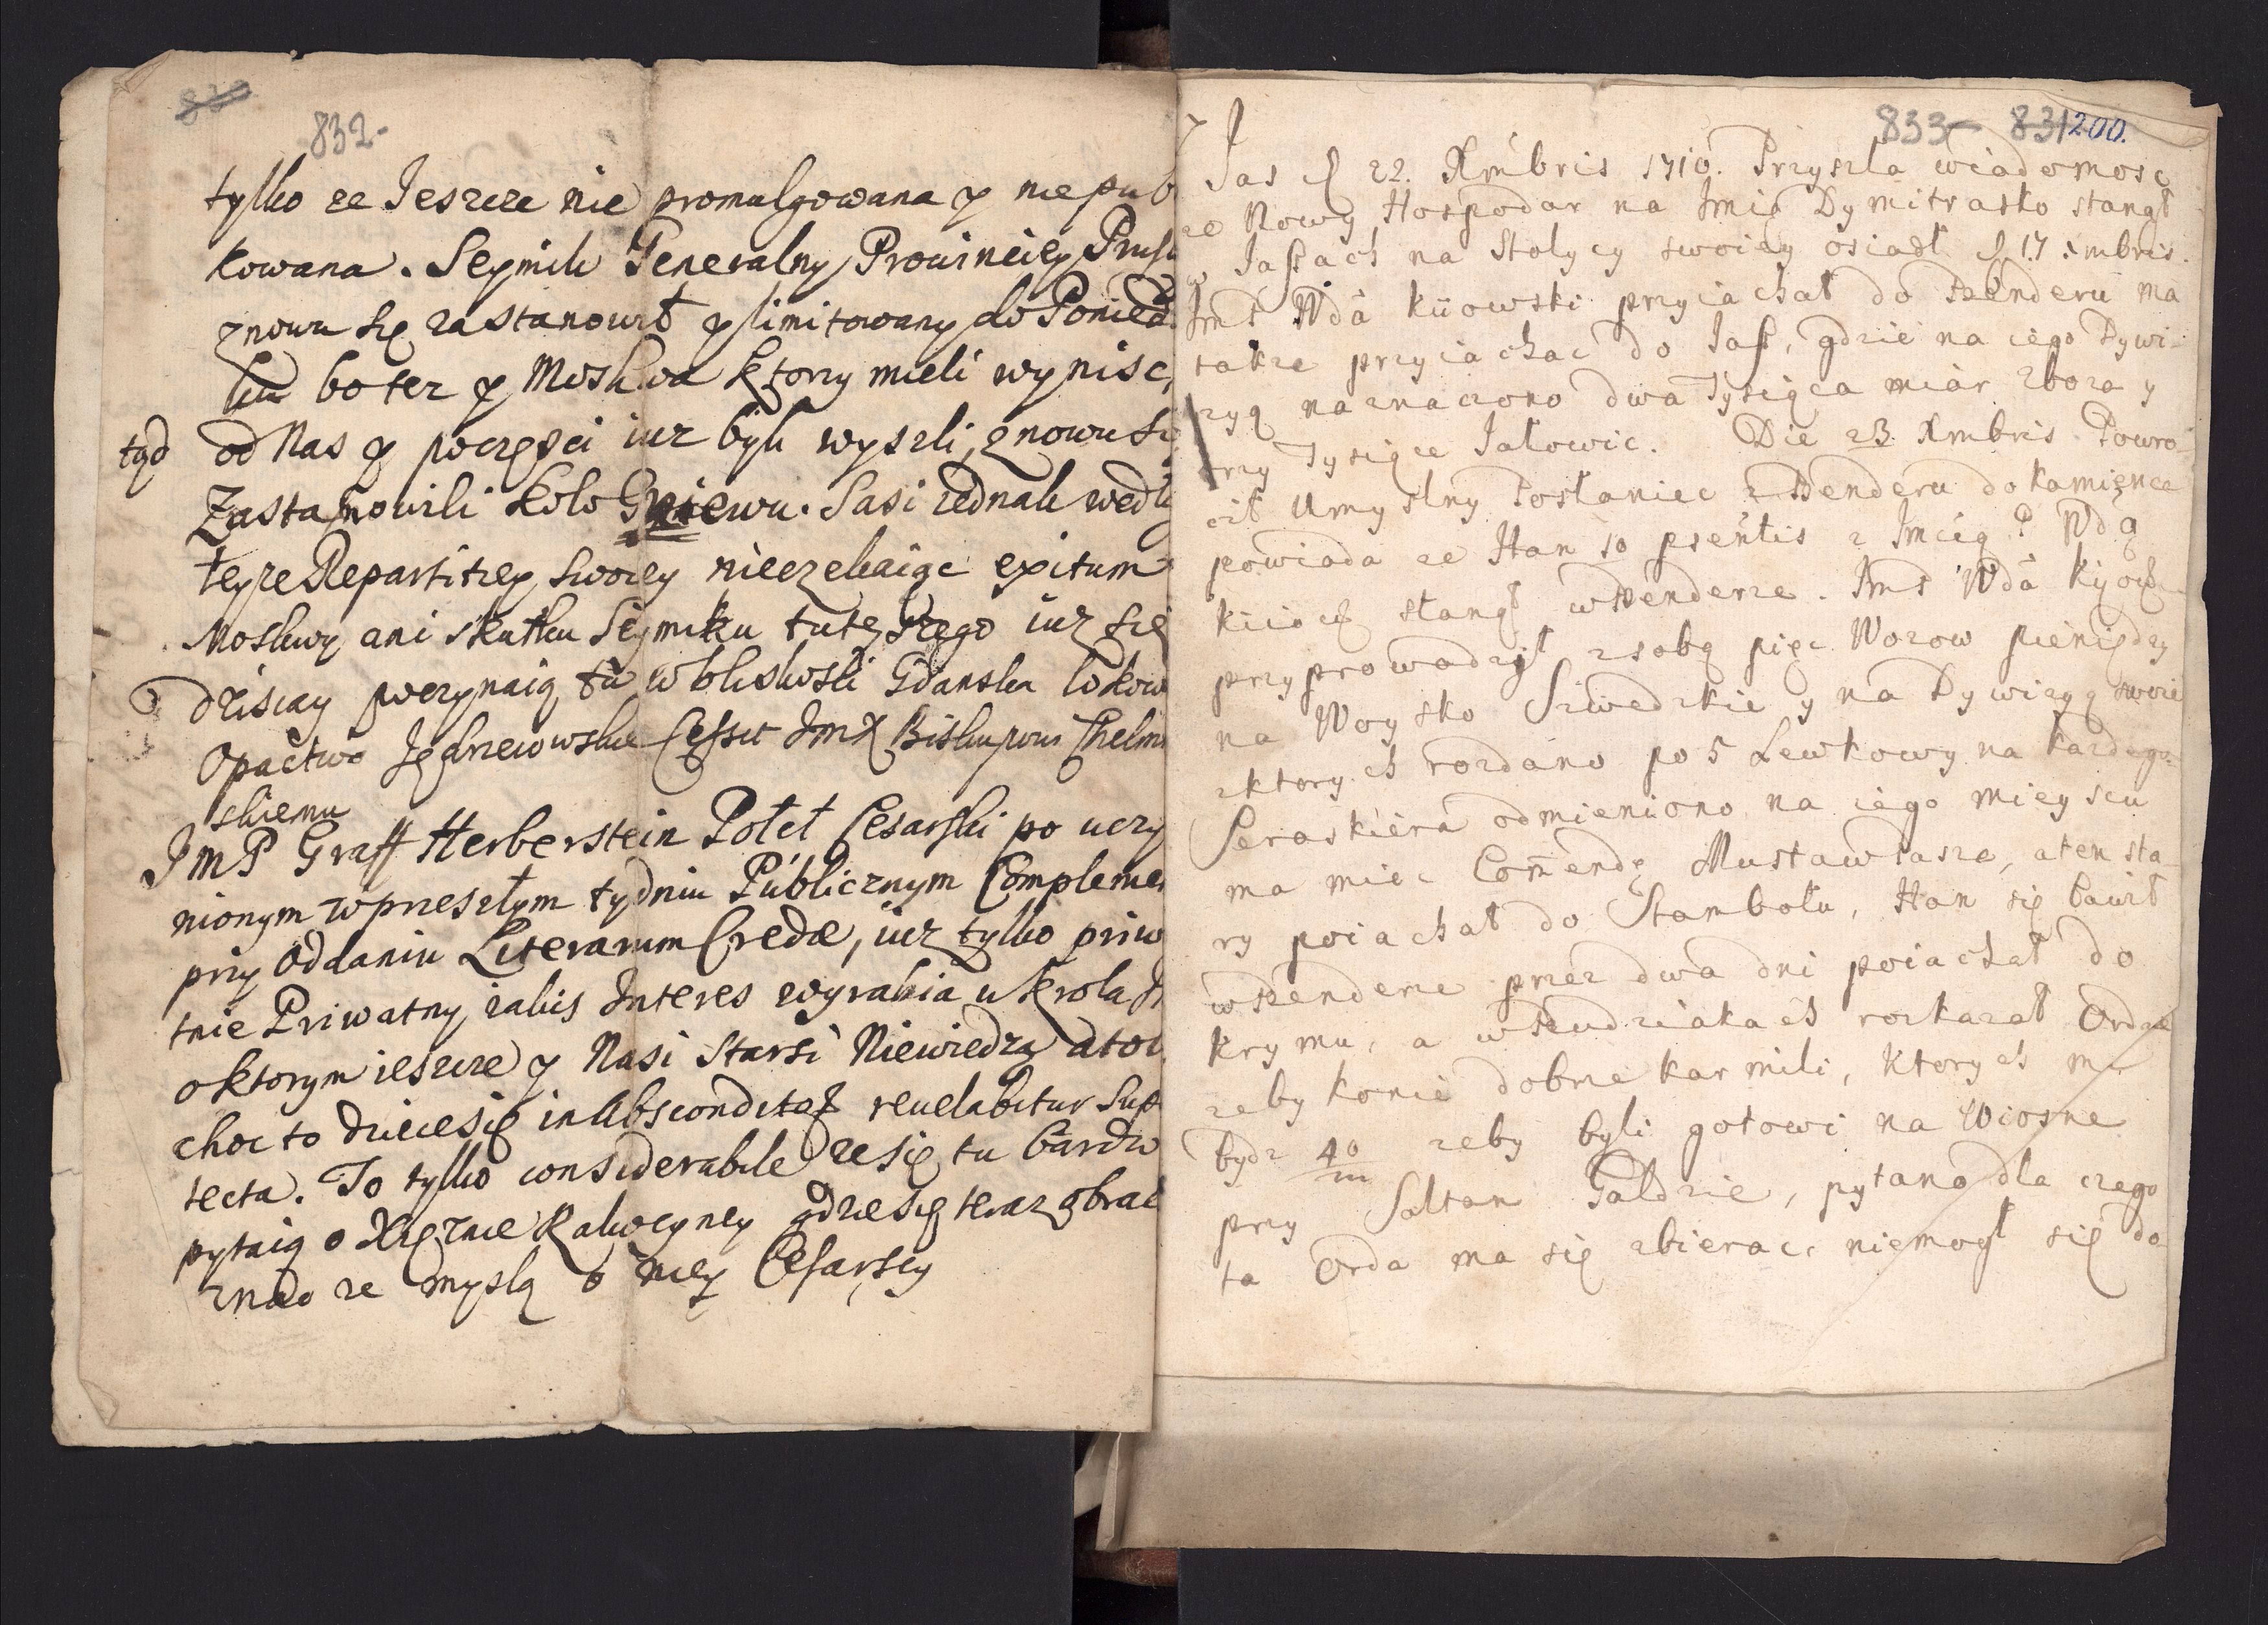 832
tylko ze Jeszcze nie promulgowana y nie pub
kowana. Seymik Generalny Prowinciey Prusk
znowu się zastanowił y limitowany do Poniedz
łku bo tez y Moskwa ktorzy mieli wynisc,
tąd od Nas y poczęsci iuz byli wyszli, znowu się
Zastanowili koło Gniewu. Sasi iednak wedłu
teyze Repartitiey swoiey nieczekaiąc exitum
Moskwy ani skutku Seymiku tuteyszego iuz się
dzisiay poczynaią tu wbliskosti Gdanska lokow
Opactwo Jędrzeiowskie Cessit JmX Biskupowi Chelmi
skiemu
JMP Graff Herberstein Poseł Cesarski po uczy
nionym w przeszłym tydniu Publicznym Complemen
przy oddaniu Literarum Credæ, iuz tylko priw
tnie Priwatny iakis Interes wyrabia u krola J
o ktorym ieszcze y Nasi Starsi Niewiedzą ato
choc to dzieiesię in Absconditaỹ revelabitur Sup
tecta. To tylko considerabile ze się tu bardzo
pytaią o Xięznie Rakocyney gdzie się teraz obrac
znac ze myslą o niey Cesarscy
833 831 200.
Jas d 22. Xmbris 1710. Przyszła wiadomosc
ze Nowy Hospodar na Imie Dymitrasko stanął
w Jaſsach na Stolycy swoiey osiadł d 17 xmbris.
Jms Wda kiiowski przyiachał do Benderu ma
takze przyiachac do Jaſs, gdzie na iego Dywi-
zyą naznaczono dwa Tysiąca miar zboza y
trzy Tysiące Jałowic. Die 23 Xmbris Powro-
cił Umyslny Posłaniec z Benderu do kamienca
powiada ze Han 10 psentis z Imcią P Wdą
kiiow stanął w Benderze. Jms Wda kijow
przyprowadził zsobą pięc Worow pieniędzy
na Woysko Szwedzkie y na Dywizyą swoie
zktorych rozdano po 5 Lewkowy na kazdego
Seraskiera odmieniono na iego mieyscu
ma miec Comendę Mustaw basza, aten sta-
ry poiachał do Stambołu, Han się bawił
w Benderze przez dwa dni poiachał do
krymu, a w Budziakach rozkazał Ordzie
zeby konie dobrze karmili, ktorych ma
bydz 40/m zeby byli gotowi na Wiosne
przy Sałtan Gałdzie, pytano dla czego
ta Orda ma się zbierac, niemogł się do-